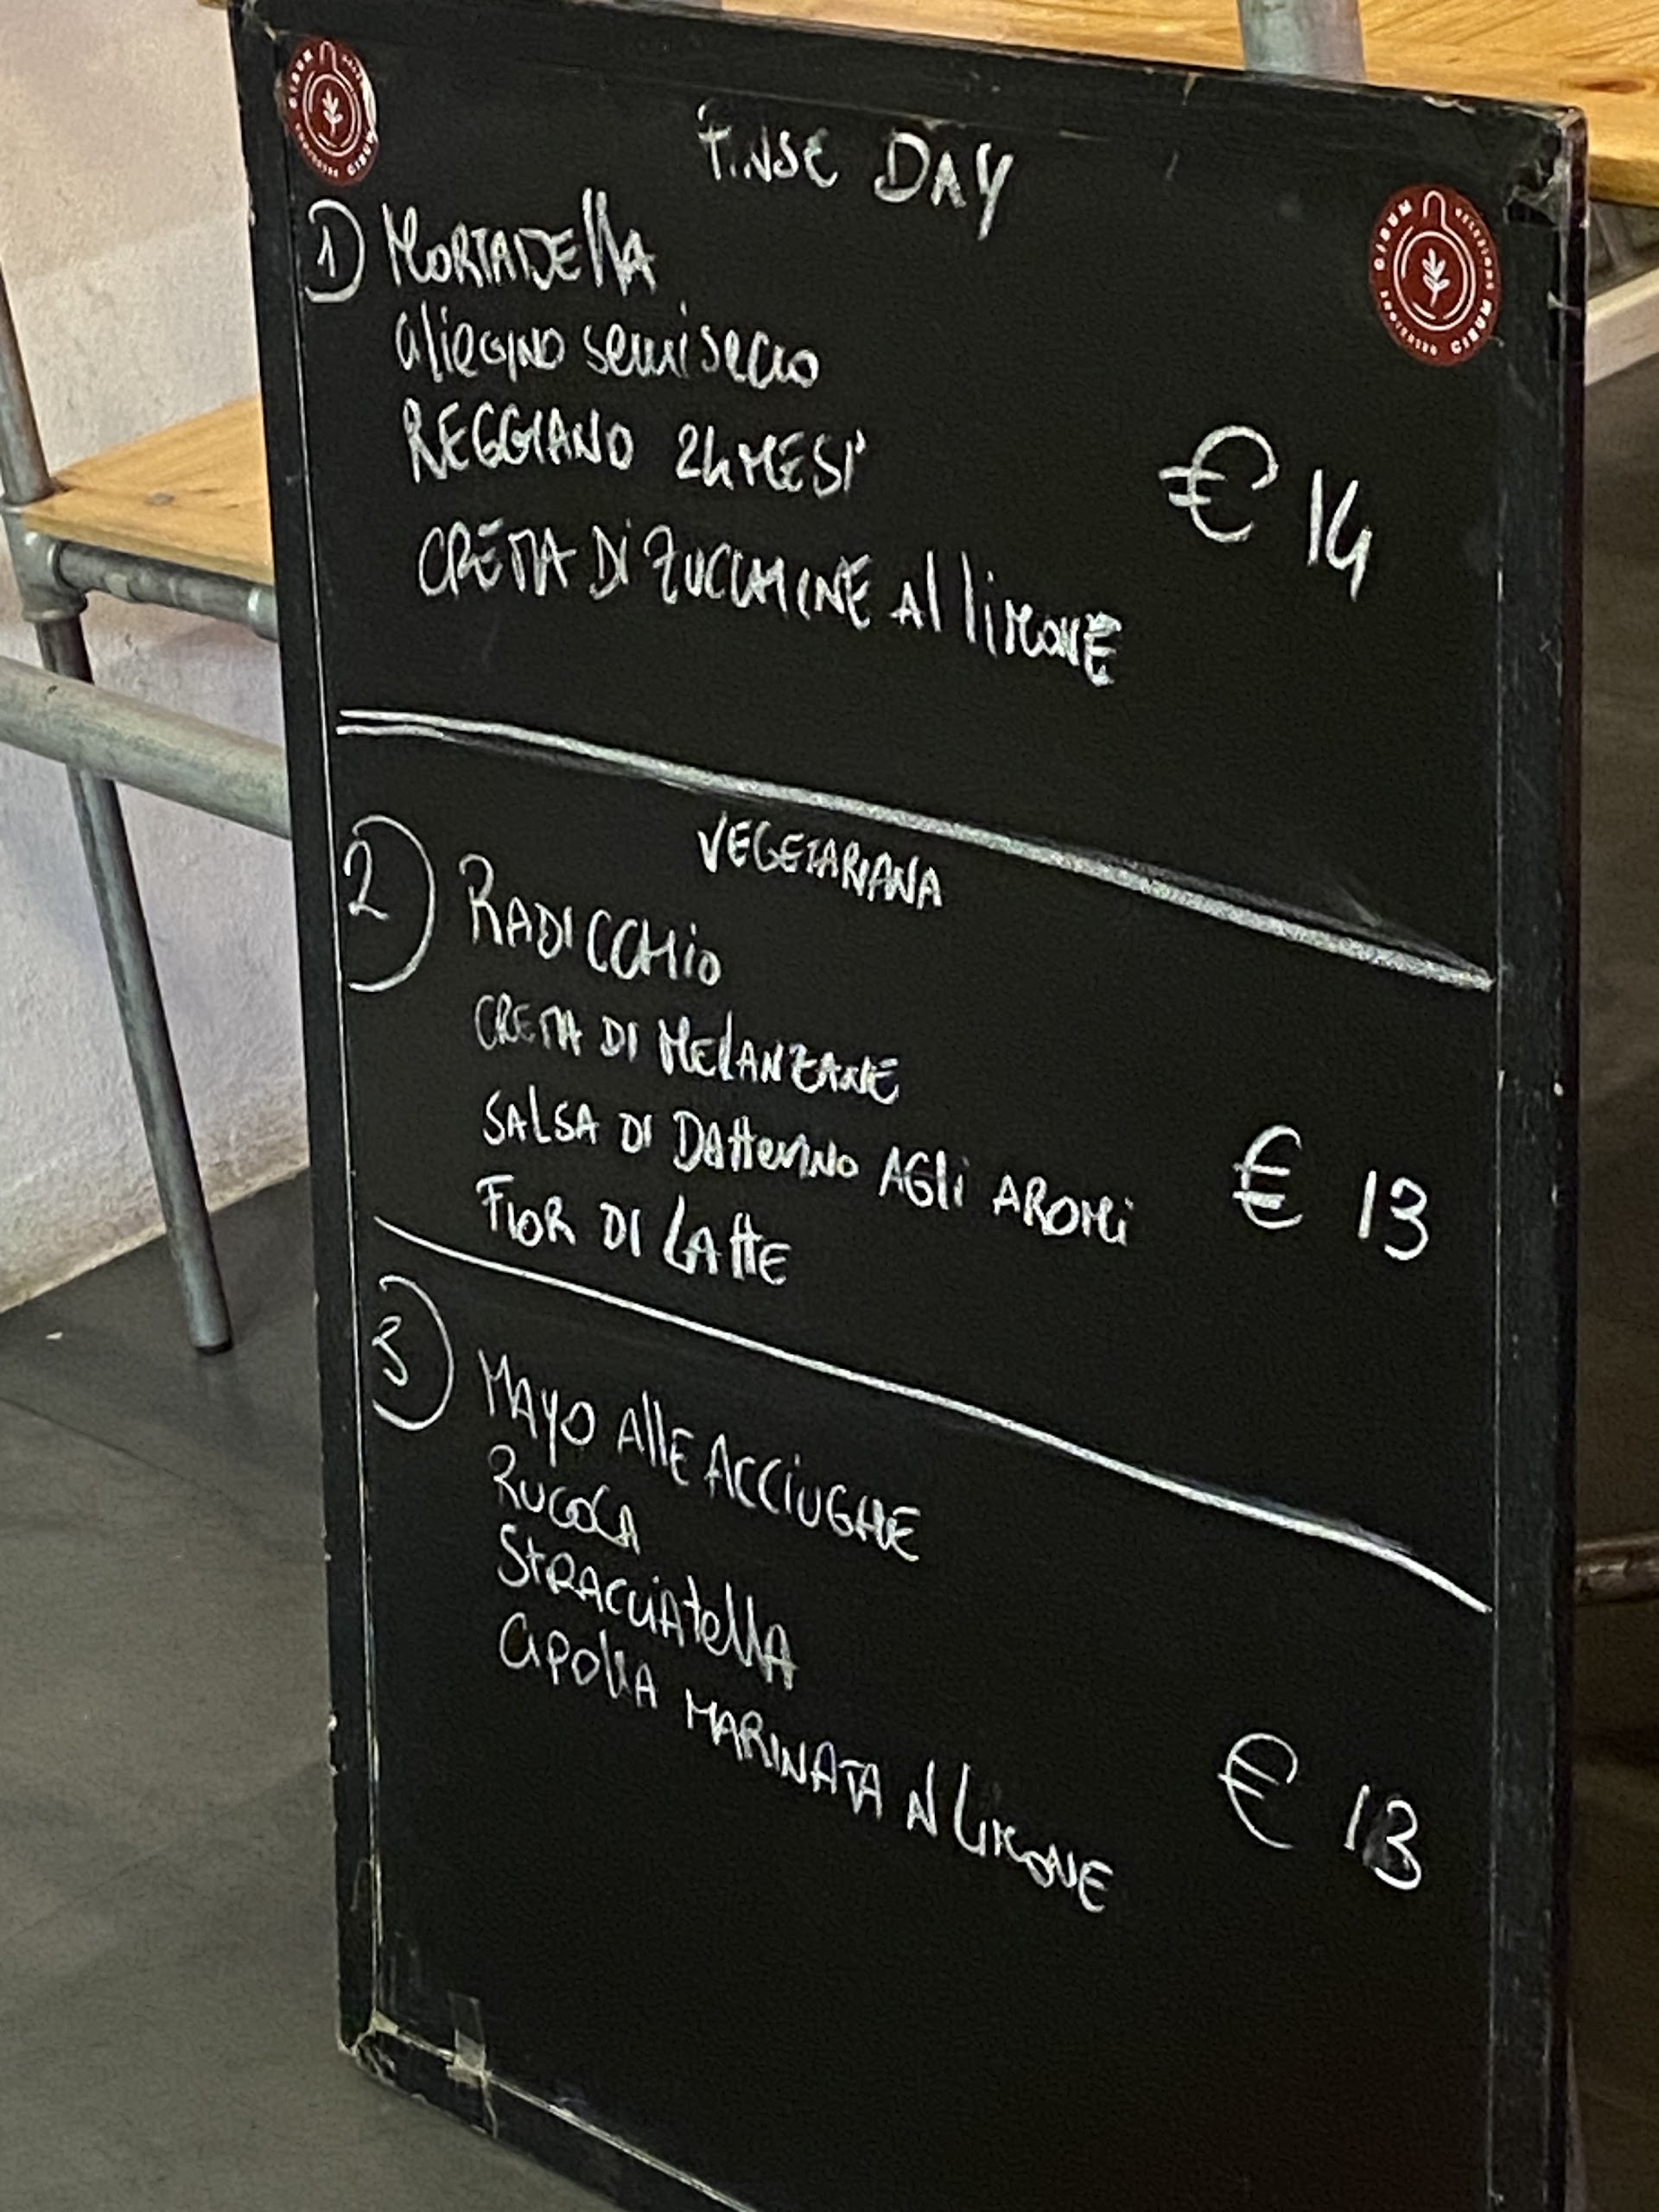 CIBUM
CIBUM
TINSE DAY
CIBUM
CIBUM
1) MORTADELLA
CILIEGINO SEMISECCO
REGGIANO 24 MESI
€ 14
CREMA DI ZUCCHINE AL LIMONE
VEGETARIANA
2) RADICCHIO
CREMA DI MELANZANE
SALSA DI DATTERINO AGLI AROMI
€ 13
FIOR DI LATTE
3) MAYO ALLE ACCIUGHE
RUCOLA
STRACCIATELLA
CIPOLLA MARINATA AL LIMONE
€ 13